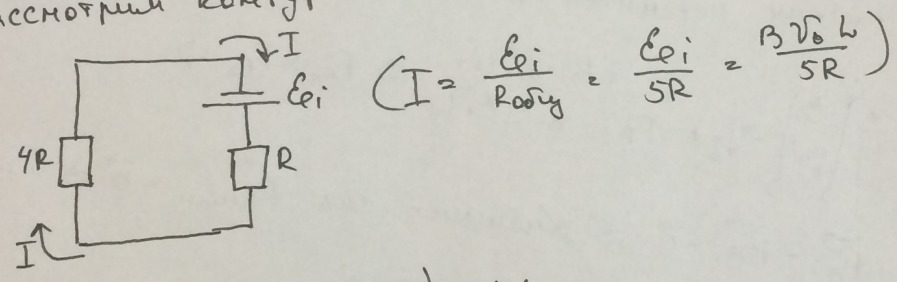 ссмотрим контур
I
ℰi
(I = ℰi / Rобщ = ℰi / 5R = B V₀ L / 5R)
4R
R
I